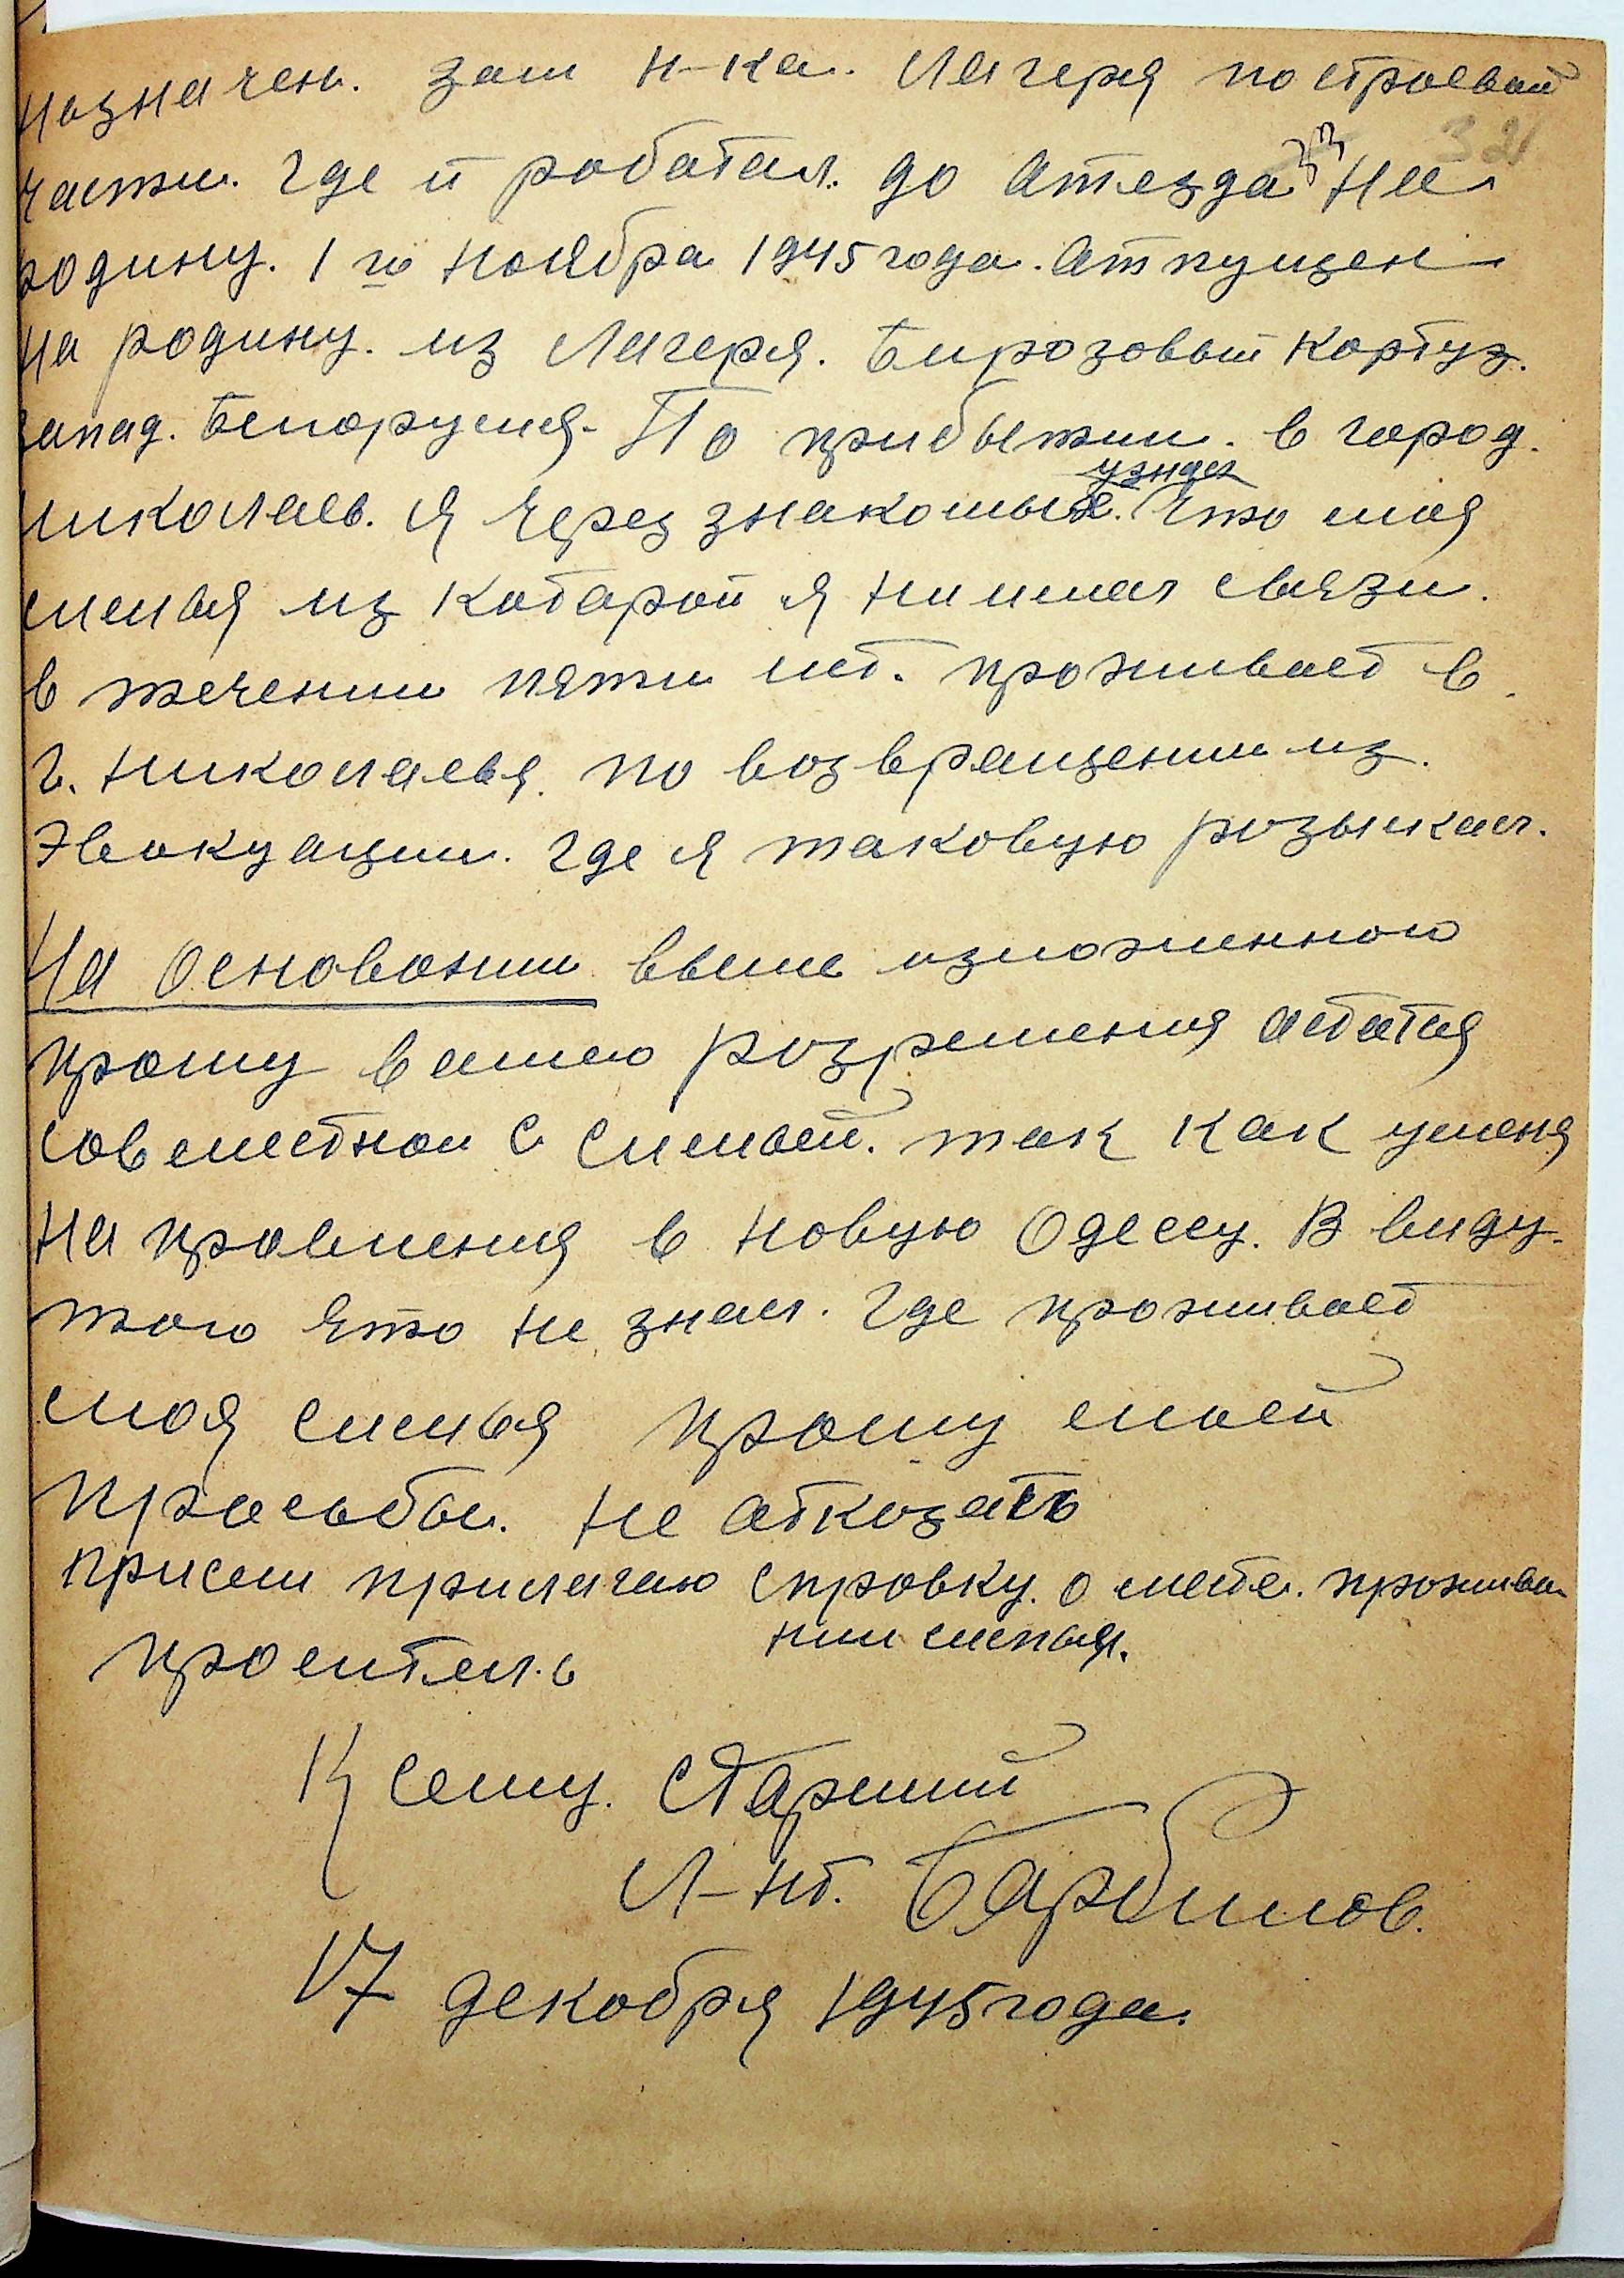 назначен. зам н-ка. Лагеря по строевой
части. Где и роботал. до Атезда на
родину. 1го Ноября 1945 года. Атпущен
на родину. из Лагеря. Бирозовый Картуз.
запад. Белорусия. По прибытии. в город.
Николаев. я через знакомых. узнал Что моя
семья из которой я ни имел связи.
в течении пяти лет. проживает в
г. Николаевя. по возвращении из.
Эвокуации. Где я таковую розыскал.
На Основонии выше изложенного
прошу вашего розрешения астатся
совместной с семьей. так как уменя
на провления в Новую Одессу. В виду
того что не знал. Где проживает
моя семья прошу моей
просьбы. не аткозать
присем прилагаю справку. о месте. прожива
нии семьи.
проситель
К сему. Старший
Л-нт. Барбилов.
17 декобря 1945 года.
33
32